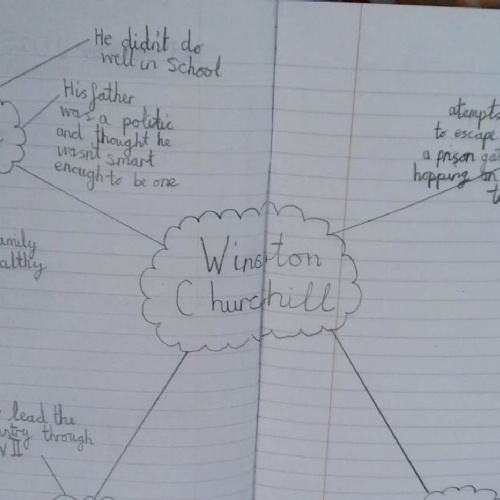 He didn't do
well in School
His father
was a politic
and thought he
wasn't smart
enough to be one
atempts
to escape
a prison
hopping on
Winston
Churchill
amily
althy
lead the
ntry through
W II